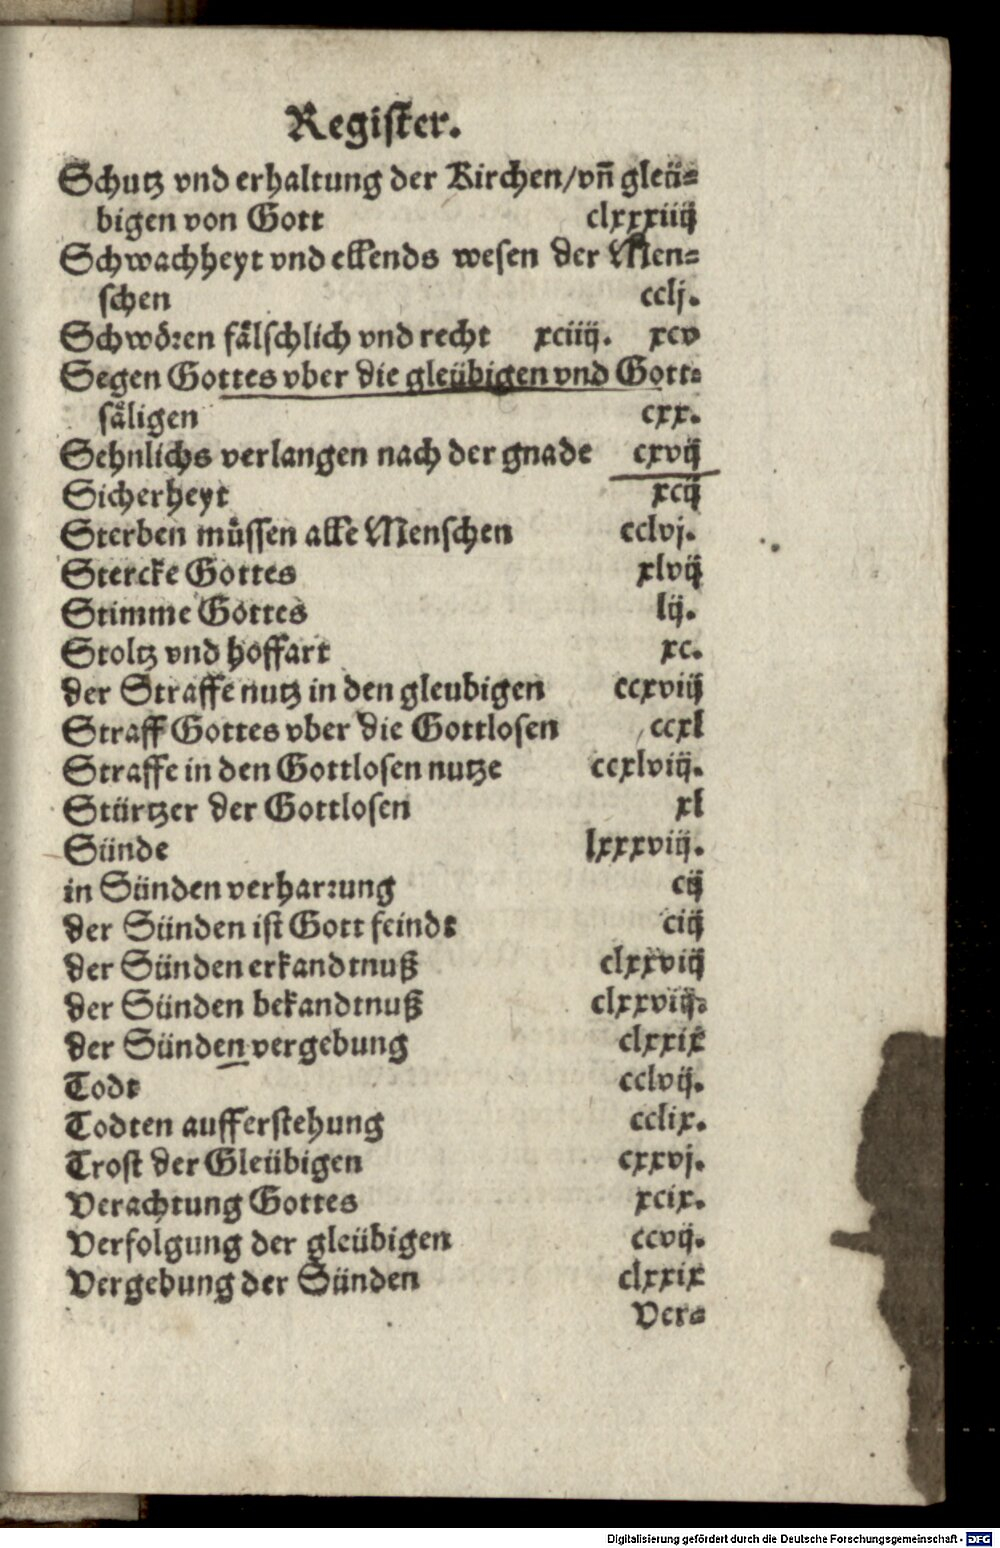 Register.
Schutz vnd erhaltung der Kirchen/vñ gleü-
bigen von Gott clxxxiiij
Schwachheyt vnd ellends wesen der Men-
schen cclj.
Schwören fälschlich vnd recht xciiij. xcv
Segen Gottes vber die gleübigen vnd Gott-
säligen cxx.
Sehnlichs verlangen nach der gnade cxvij
Sicherheyt xcij
Sterben müssen alle Menschen cclvj.
Stercke Gottes xlvij
Stimme Gottes lij.
Stoltz vnd hoffart xc.
der Straffe nutz in den gleubigen ccxviij
Straff Gottes vber die Gottlosen ccxl
Straffe in den Gottlosen nutze ccxlviij.
Stürtzer der Gottlosen xl
Sünde lxxxviij.
in Sünden verharrung cij
der Sünden ist Gott feindt ciij
der Sünden erkandtnuß clxxviij
der Sünden bekandtnuß clxxviij.
der Sünden vergebung clxxix
Todt cclvij.
Todten aufferstehung cclix.
Trost der Gleübigen cxxvj.
Verachtung Gottes xcix.
Verfolgung der gleübigen ccvij.
Vergebung der Sünden clxxix
Ver-
Digitalisierung gefördert durch die Deutsche Forschungsgemeinschaft - DFG